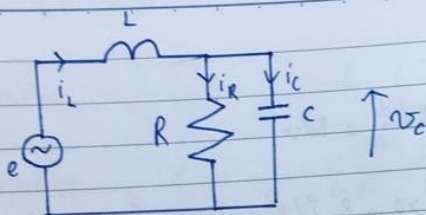 L
i_L
i_R
i_C
R
C
v_c
e
~